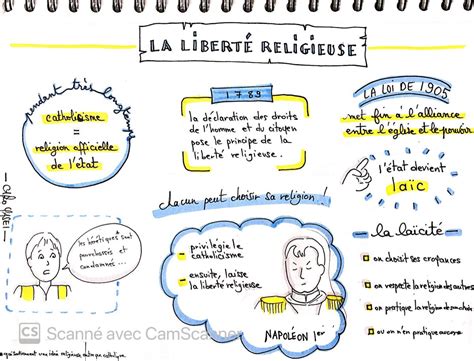 LA LIBERTÉ RELIGIEUSE
pendant très longtemps
catholicisme
=
religion officielle
de l'état
1789
la déclaration des droits
de l'homme et du citoyen
pose le principe de la
liberté religieuse.
chacun peut choisir sa religion !
LA LOI DE 1905
met fin à l'alliance
entre l'église et le pouvoir
l'état devient
laïc
les hérétiques* sont
pourchassés et
condamnés ...
privilégie le
catholicisme
ensuite, laisse
la liberté religieuse
NAPOLÉON 1er
la laïcité =
on choisit ses croyances
on respecte la religion des autres
on pratique la religion de son choix
ou on n'en pratique aucune
CS Scanné avec CamScanner